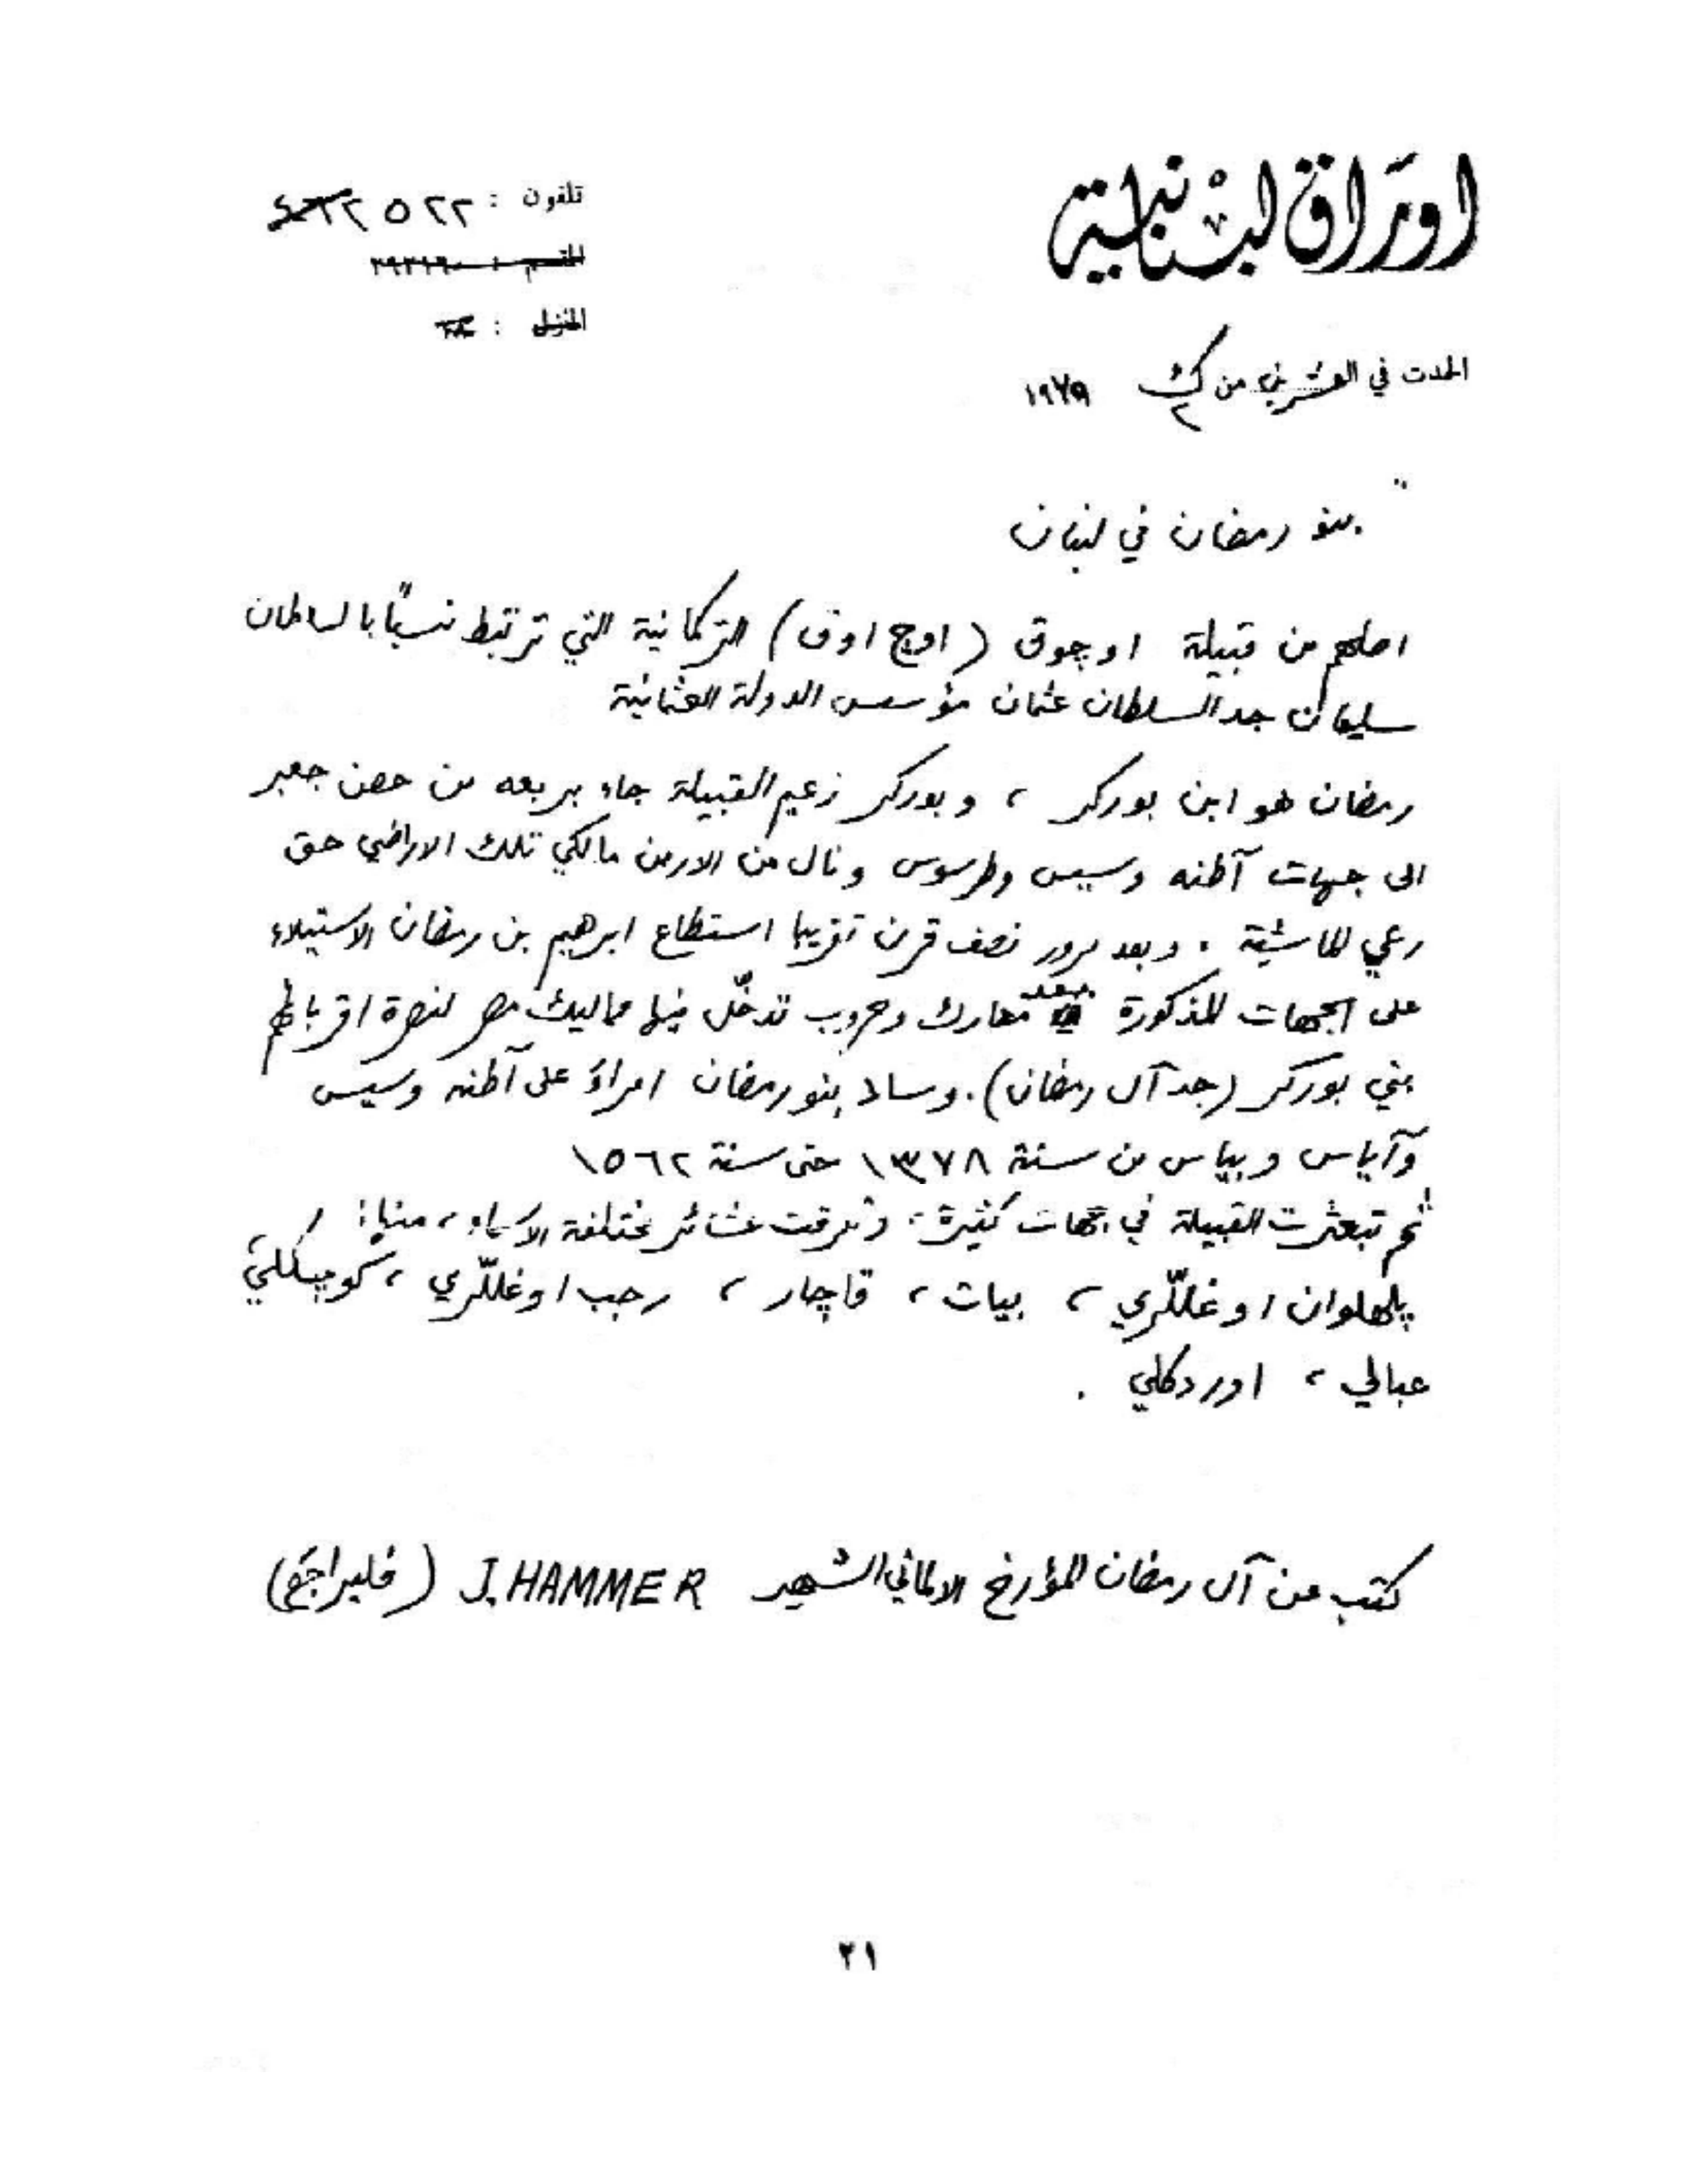 اوراق لبنانية
تلفون : ٢٢ ٥ ٢٢
القسم :
المنزل :
الحدث في العشرين من ك٢ ١٩٧٩
بنو رمضان في لبنان
اصلهم من قبيلة اوجوق (اوج اوق) التركمانية التي ترتبط نسبًا بالسلطان
سليمان جد السلطان عثمان مؤسس الدولة العثمانية
رمضان هو ابن يوركر ، ويوركر زعيم القبيلة جاء بربعه من حصن جعبر
الى جهات آطنه وسيس وطرسوس ونال من الارمن مالكي تلك الاراضي حق
رعي الماشية . وبعد مرور نصف قرن تقريبا استطاع ابرهيم بن رمضان الاستيلاء
على الجهات المذكورة بعد معارك وحروب تدخّل فيها مماليك مصر لنصرة اقربائهم
بني يوركر (جد آل رمضان) . وساد بنو رمضان امراء على آطنه وسيس
وآياس وبياس من سنة ١٣٧٨ حتى سنة ١٥٦٢
ثم تبعثرت القبيلة في جهات كثيرة، وتفرقت عشائر مختلفة الاسماء، منها:
پهلوان اوغللّري ، بيات ، قاچار ، رجب اوغللّري ، كوچكلي
عبالي ، اوردكلي .
كتب عن آل رمضان المؤرخ الالماني الشهير J. HAMMER (فليراجَع)
٢١